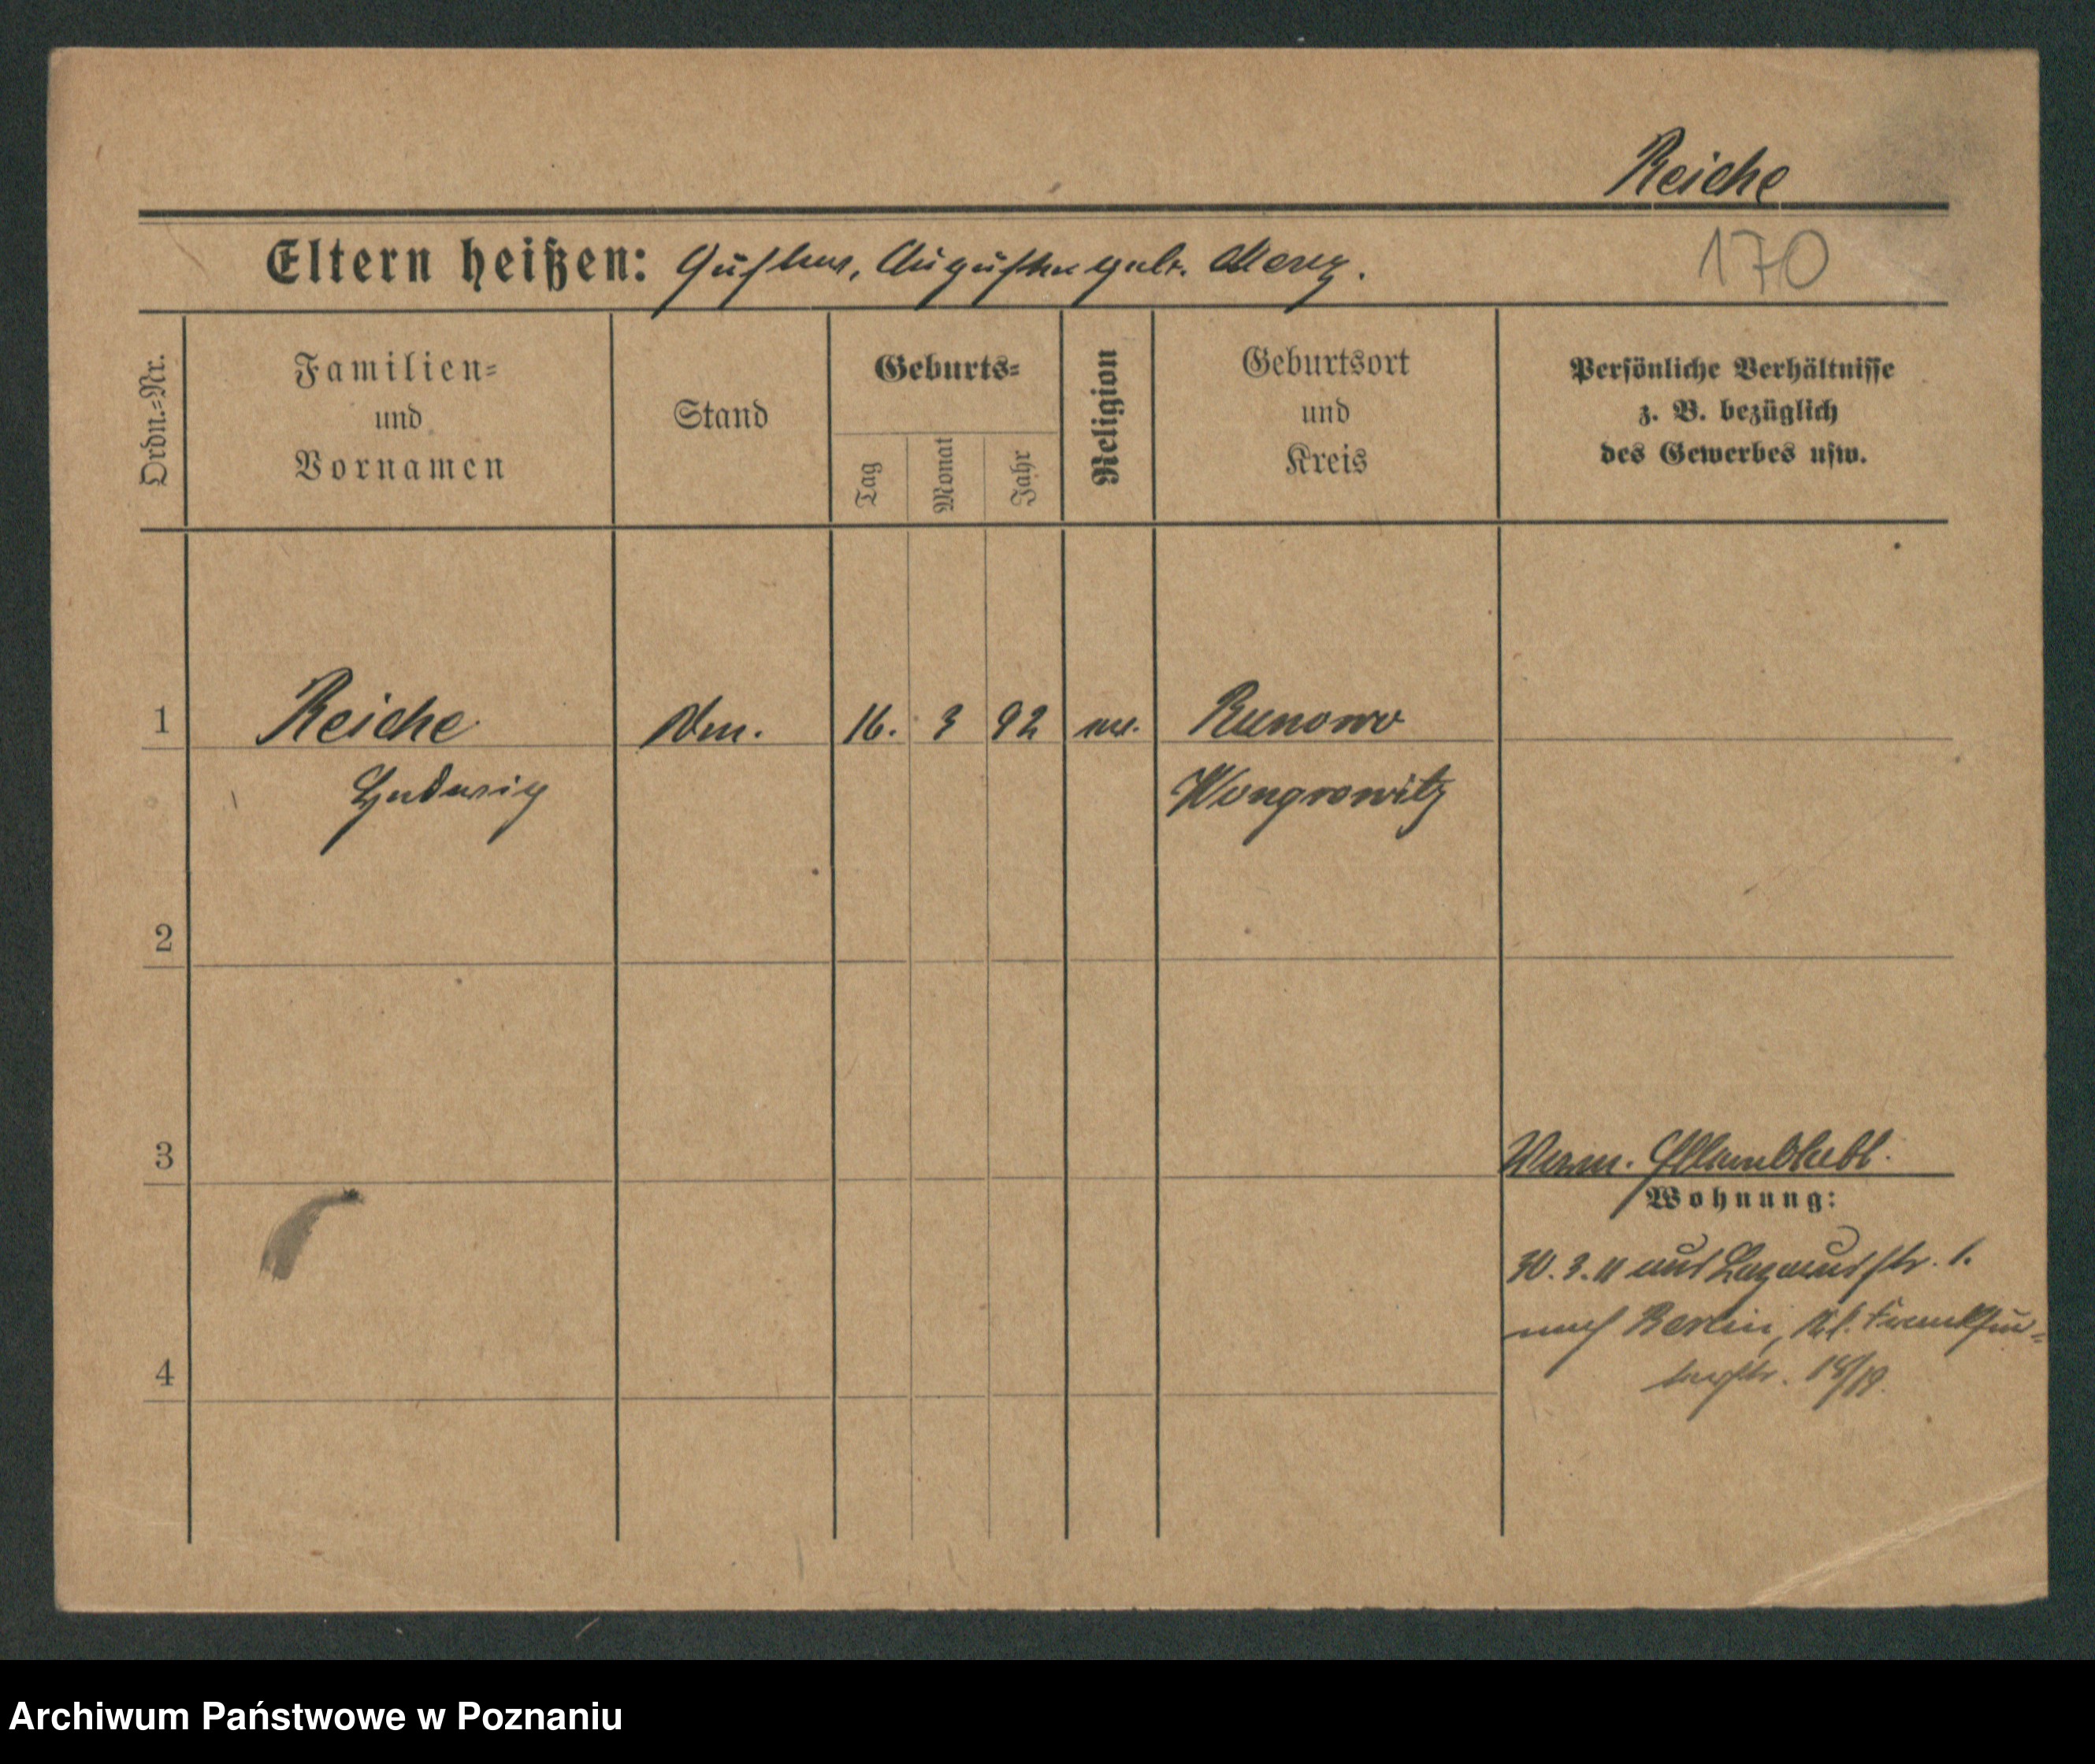 Reiche
Eltern heißen: Gustav, Auguste geb. Menz.
170
Ordn.=Nr.
Familien=
und
Vornamen
Stand
Geburts=
Tag
Monat
Jahr
Religion
Geburtsort
und
Kreis
Persönliche Verhältnisse
z. B. bezüglich
des Gewerbes usw.
1
Reiche
16. 3 92
Runowo
Ludwig
Wongrowitz
2
3
4
Wohnung:
30.3.11 aus str. 1.
nach Berlin, Kl. Frankfur=
terstr. 18/19.
Archiwum Państwowe w Poznaniu